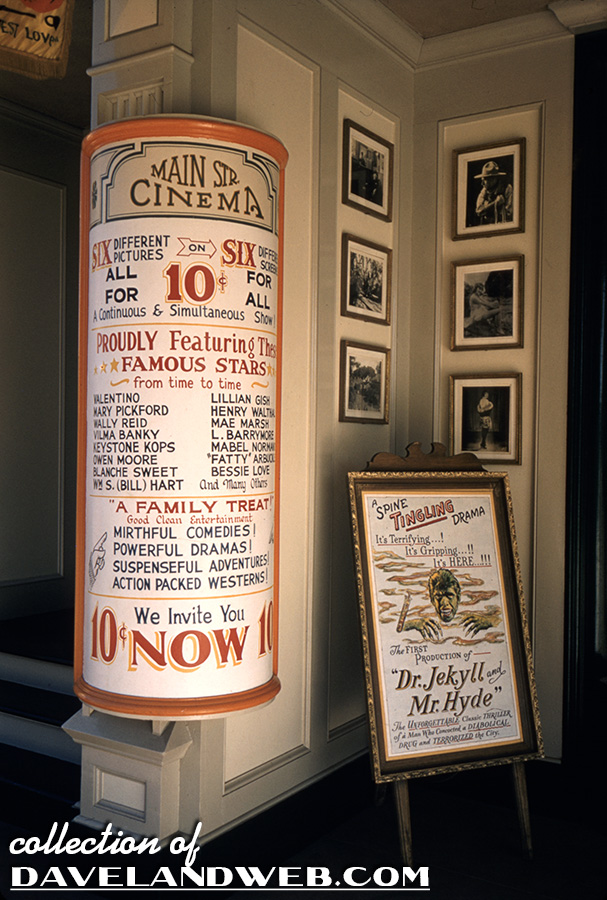 EST LOVE
MAIN STR.
CINEMA
SIX DIFFERENT PICTURES ON SIX
ALL FOR 10¢ FOR ALL
A Continuous & Simultaneous Show
PROUDLY Featuring
FAMOUS STARS
from time to time
VALENTINO
MARY PICKFORD
WALLY REID
VILMA BANKY
KEYSTONE KOPS
OWEN MOORE
BLANCHE SWEET
WM S. (BILL) HART
LILLIAN GISH
HENRY WALTHA
MAE MARSH
L. BARRYMORE
MABEL NORMAN
"FATTY" ARBUCK
BESSIE LOVE
And Many Others
"A FAMILY TREAT!
Good Clean Entertainment
MIRTHFUL COMEDIES!
POWERFUL DRAMAS!
SUSPENSEFUL ADVENTURES!
ACTION PACKED WESTERNS!
We Invite You
10¢ NOW 10
A SPINE
TINGLING
DRAMA
It's Terrifying...!
It's Gripping...!!
It's HERE...!!!
The FIRST
PRODUCTION of
"Dr. Jekyll and
Mr. Hyde"
The UNFORGETTABLE Classic THRILLER
of a Man Who Concocted a DIABOLICAL
DRUG and TERRORIZED the City.
collection of
DAVELANDWEB.COM